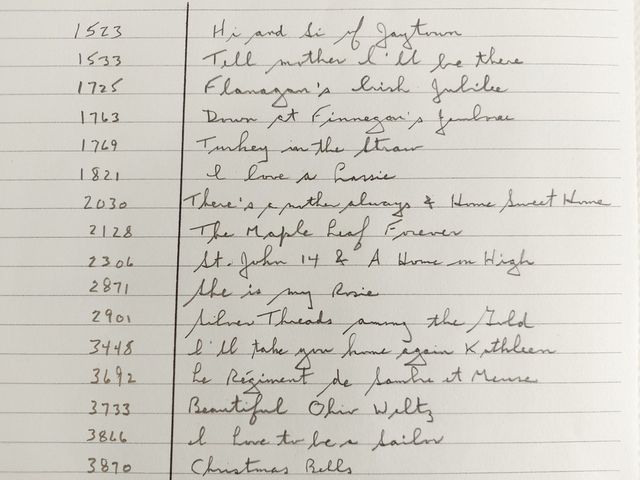 1523 Hi and Si of Jaytown
1533 Tell mother I'll be there
1725 Flanagan's Irish Jubilee
1763 Down at Finnegan's Jamboree
1769 Turkey in the Straw
1821 I love a Lassie
2030 There's a mother always & Home Sweet Home
2128 The Maple Leaf Forever
2306 St. John 14 & A Home on High
2871 She is my Rosie
2901 Silver Threads among the Gold
3448 I'll take you home again Kathleen
3692 Le Régiment de Sambre et Meuse
3733 Beautiful Ohio Waltz
3866 I love to be a Sailor
3870 Christmas Bells